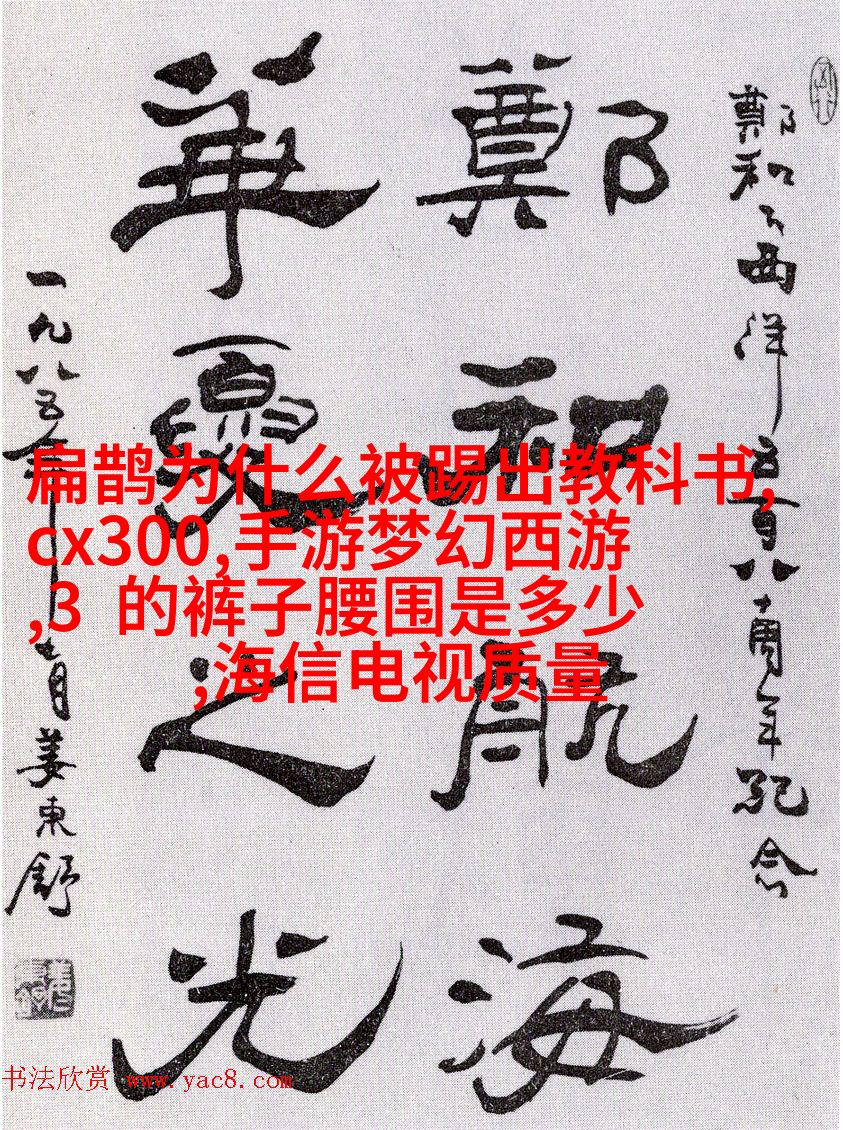 鄭和下西洋五百八十周年紀念
鄭和航海
華夏之光
一九八五年 月姜東舒
扁鹊为什么被踢出教科书,
cx300,手游梦幻西游
,3 的裤子腰围是多少
,海信电视质量
书法欣赏 www.yac8.com